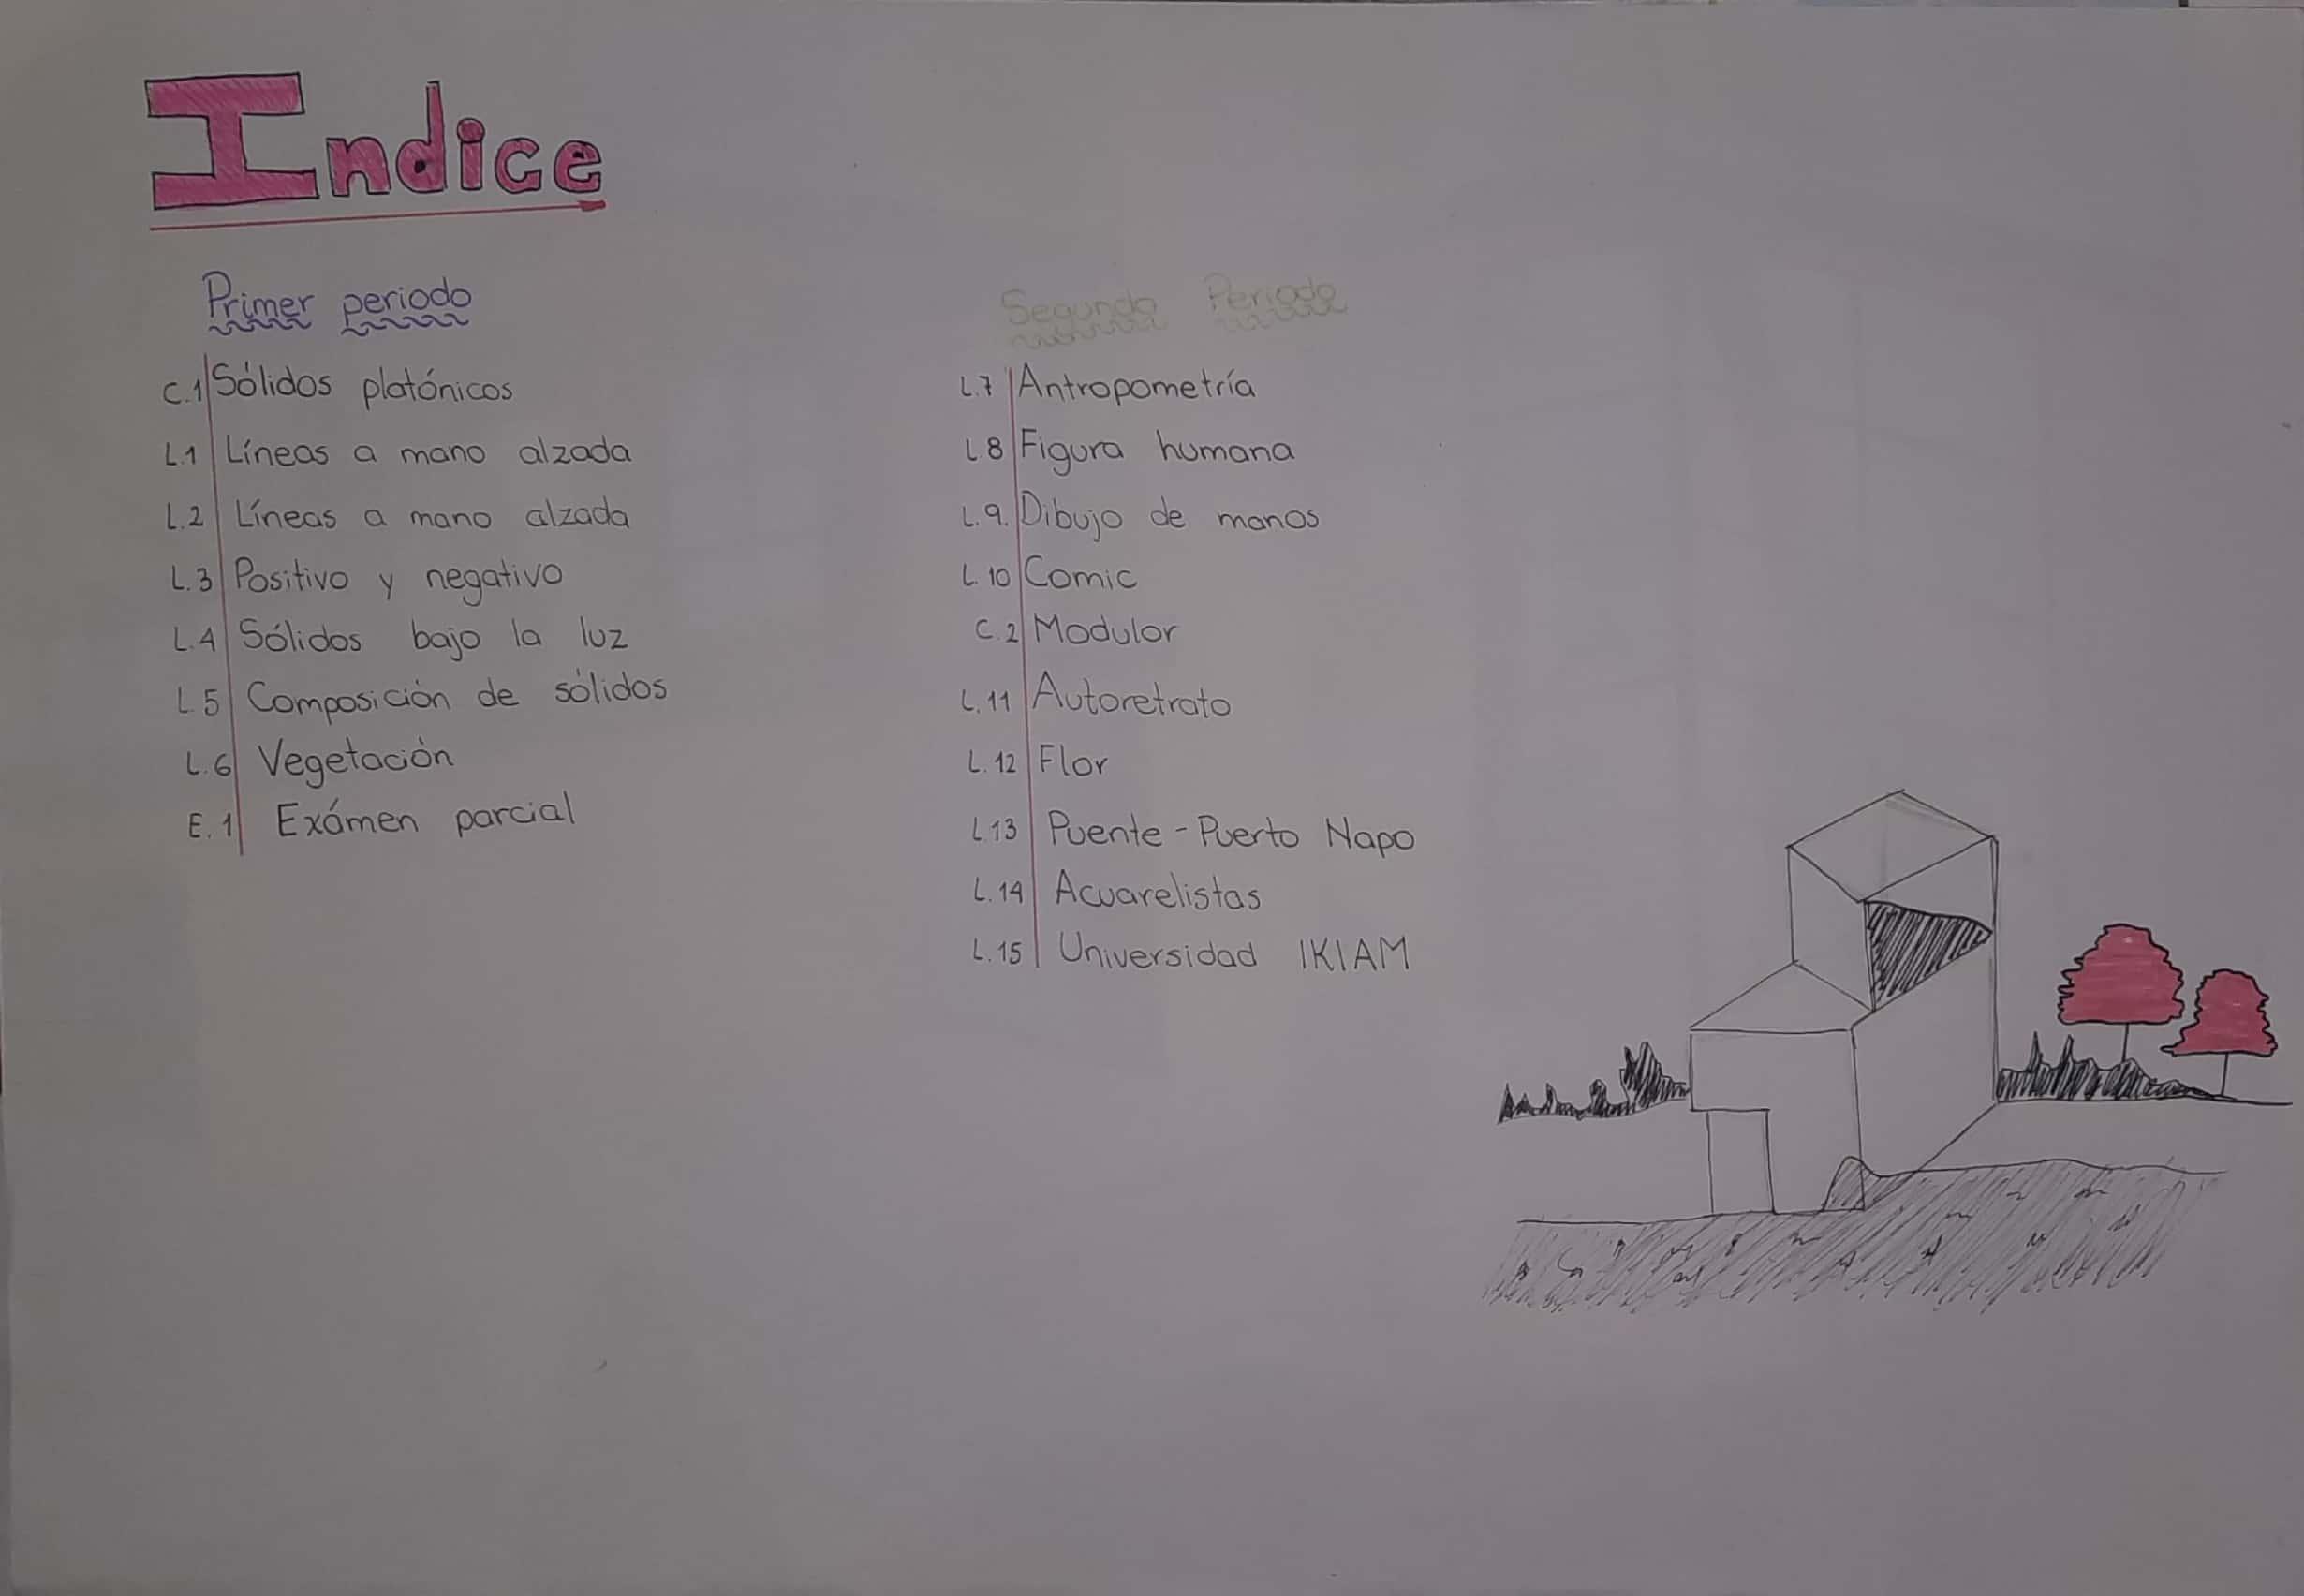 Indice
Primer periodo
C.1 Sólidos platónicos
L.1 Líneas a mano alzada
L.2 Líneas a mano alzada
L.3 Positivo y negativo
L.4 Sólidos bajo la luz
L.5 Composición de sólidos
L.6 Vegetación
E.1 Exámen parcial
Segundo Periodo
L.7 Antropometría
L.8 Figura humana
L.9. Dibujo de manos
L.10 Comic
C.2 Modulor
L.11 Autoretrato
L.12 Flor
L.13 Puente - Puerto Napo
L.14 Acuarelistas
L.15 Universidad IKIAM